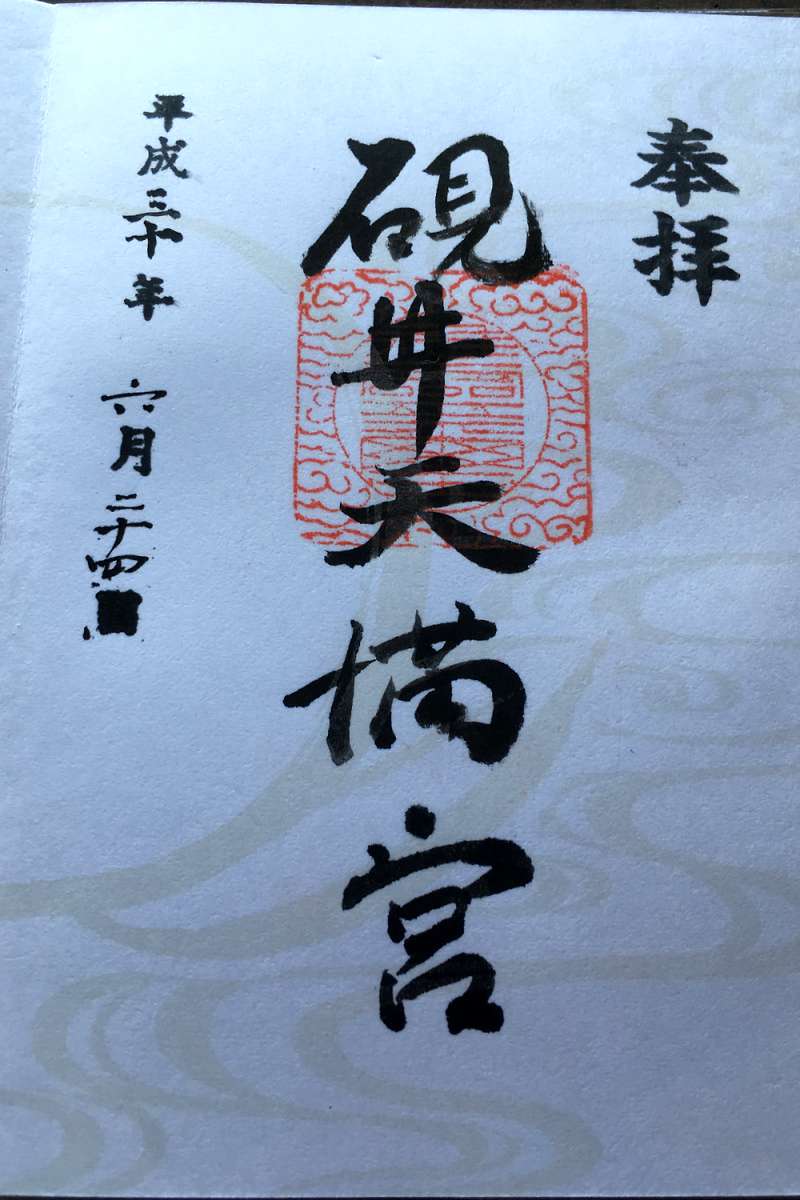 奉拝
硯井天満宮
平成三十年 六月二十四